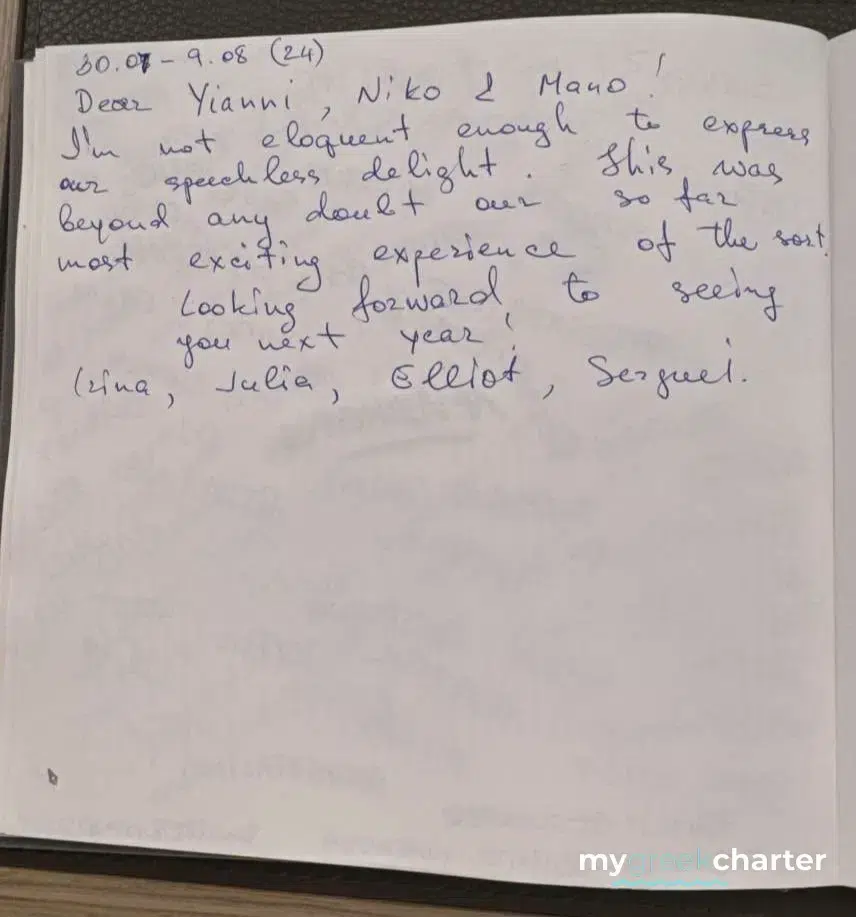 30.07 - 9.08 (24)
Dear Yianni, Niko & Mano!
I'm not eloquent enough to express
our speechless delight. This was
beyond any doubt our so far
most exciting experience of the sort.
Looking forward to seeing
you next year!
Irina, Julia, Elliot, Serguei.
mygreekcharter